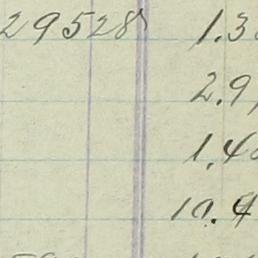 29528 1.3
2.9
1.4
10.4